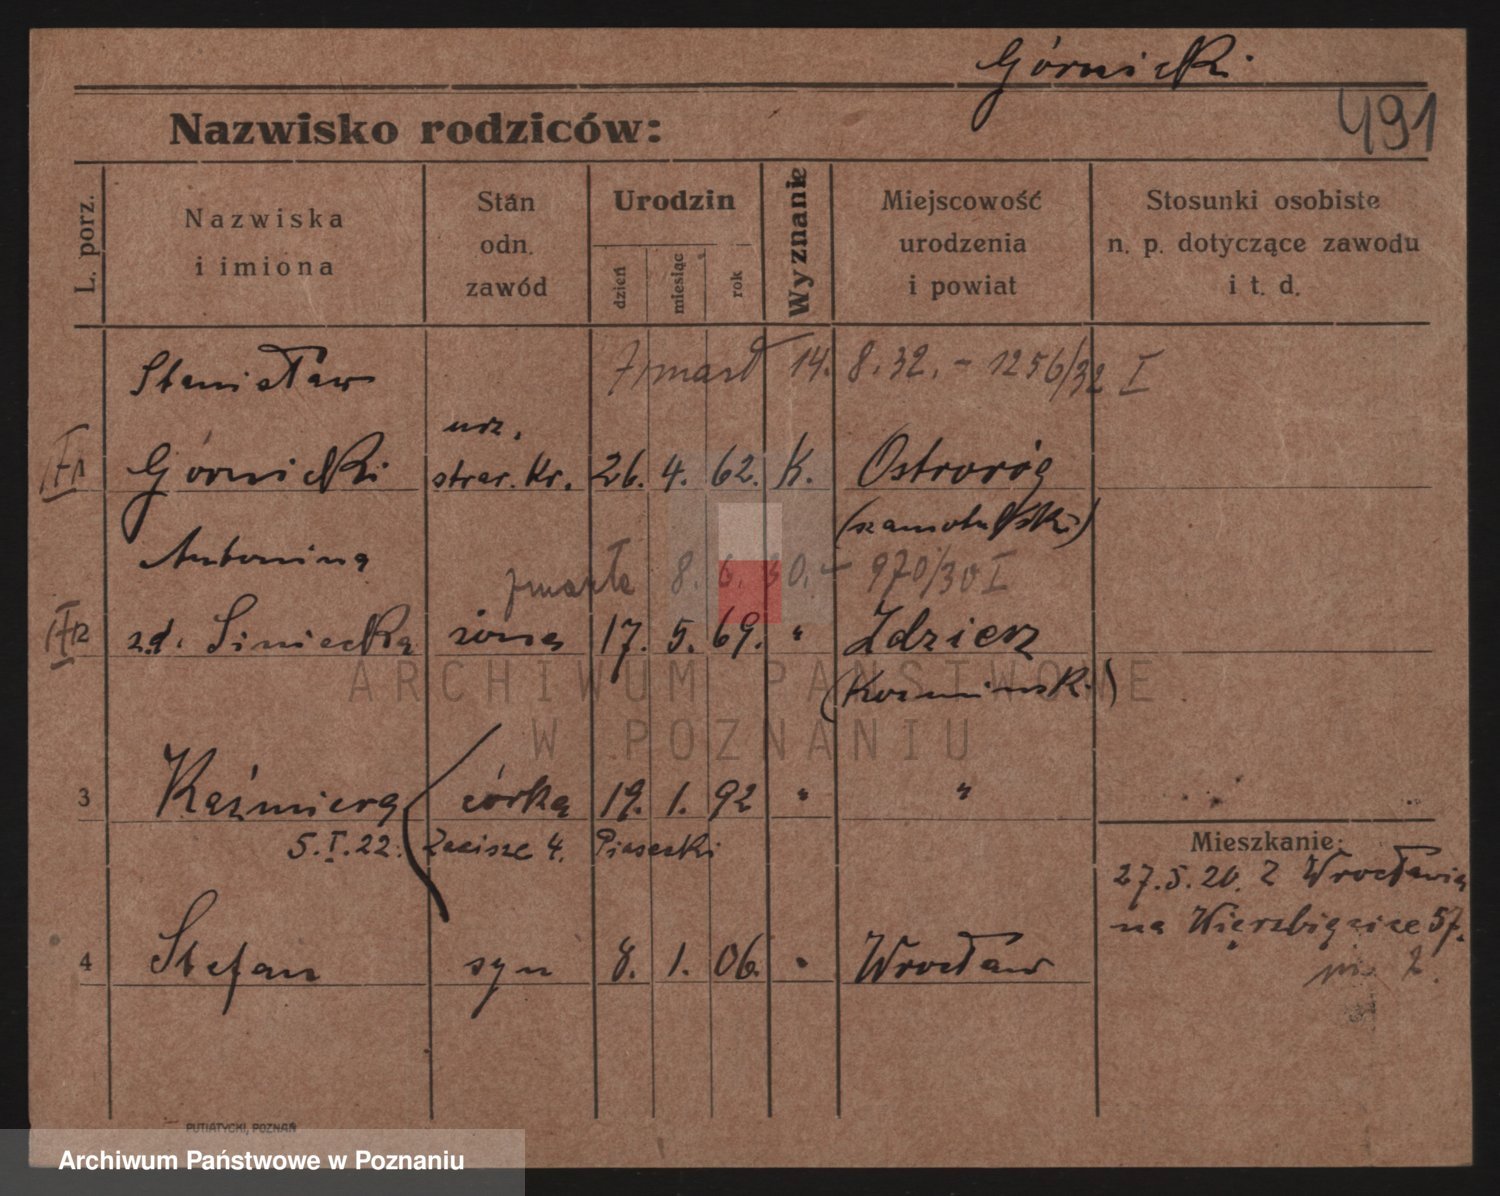 Górnicki
491
Nazwisko rodziców:
L. porz.
Nazwiska
i imiona
Stan
odn.
zawód
Urodzin
dzień
miesiąc
rok
Wyznanie
Miejscowość
urodzenia
i powiat
Stosunki osobiste
n. p. dotyczące zawodu
i t. d.
Stanisław zmarł 14. 8. 32. - 1256/32 I
urz.
1 Górnicki straż. kr. 26. 4. 62. K. Ostroróg
(szamotulski)
Antonina
zmarła 8. 6. 30. - 970/30 I
2 z.d. Siniecka żona 17. 5. 69. " Zdziesz
(Koźmiński)
3 Kaźmiera córka 19. 1. 92 " "
5. I. 22. Zacisze 4. Piasecki
Mieszkanie:
27.5.20. z Wrocławia
na Wierzbięcice 57.
m. 2.
4 Stefan syn 8. 1. 06. " Wrocław
PUTIATYCKI, POZNAŃ
ARCHIWUM PAŃSTWOWE
W POZNANIU
Archiwum Państwowe w Poznaniu